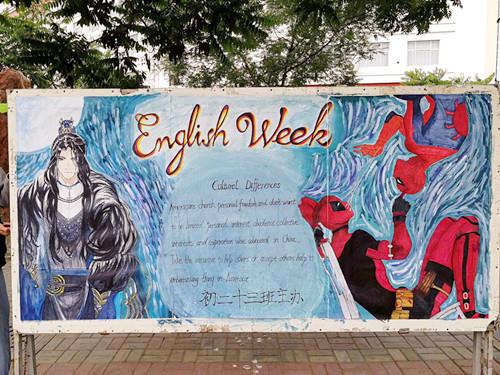 English Week
Cultural Differences
Americans cherish personal freedom and don't want
to be personal interest obedience collective
interests and cooperation was advocated in China.
Take the initiative to help others or accept others help is
embarrassing thing in America
初二十三班主办